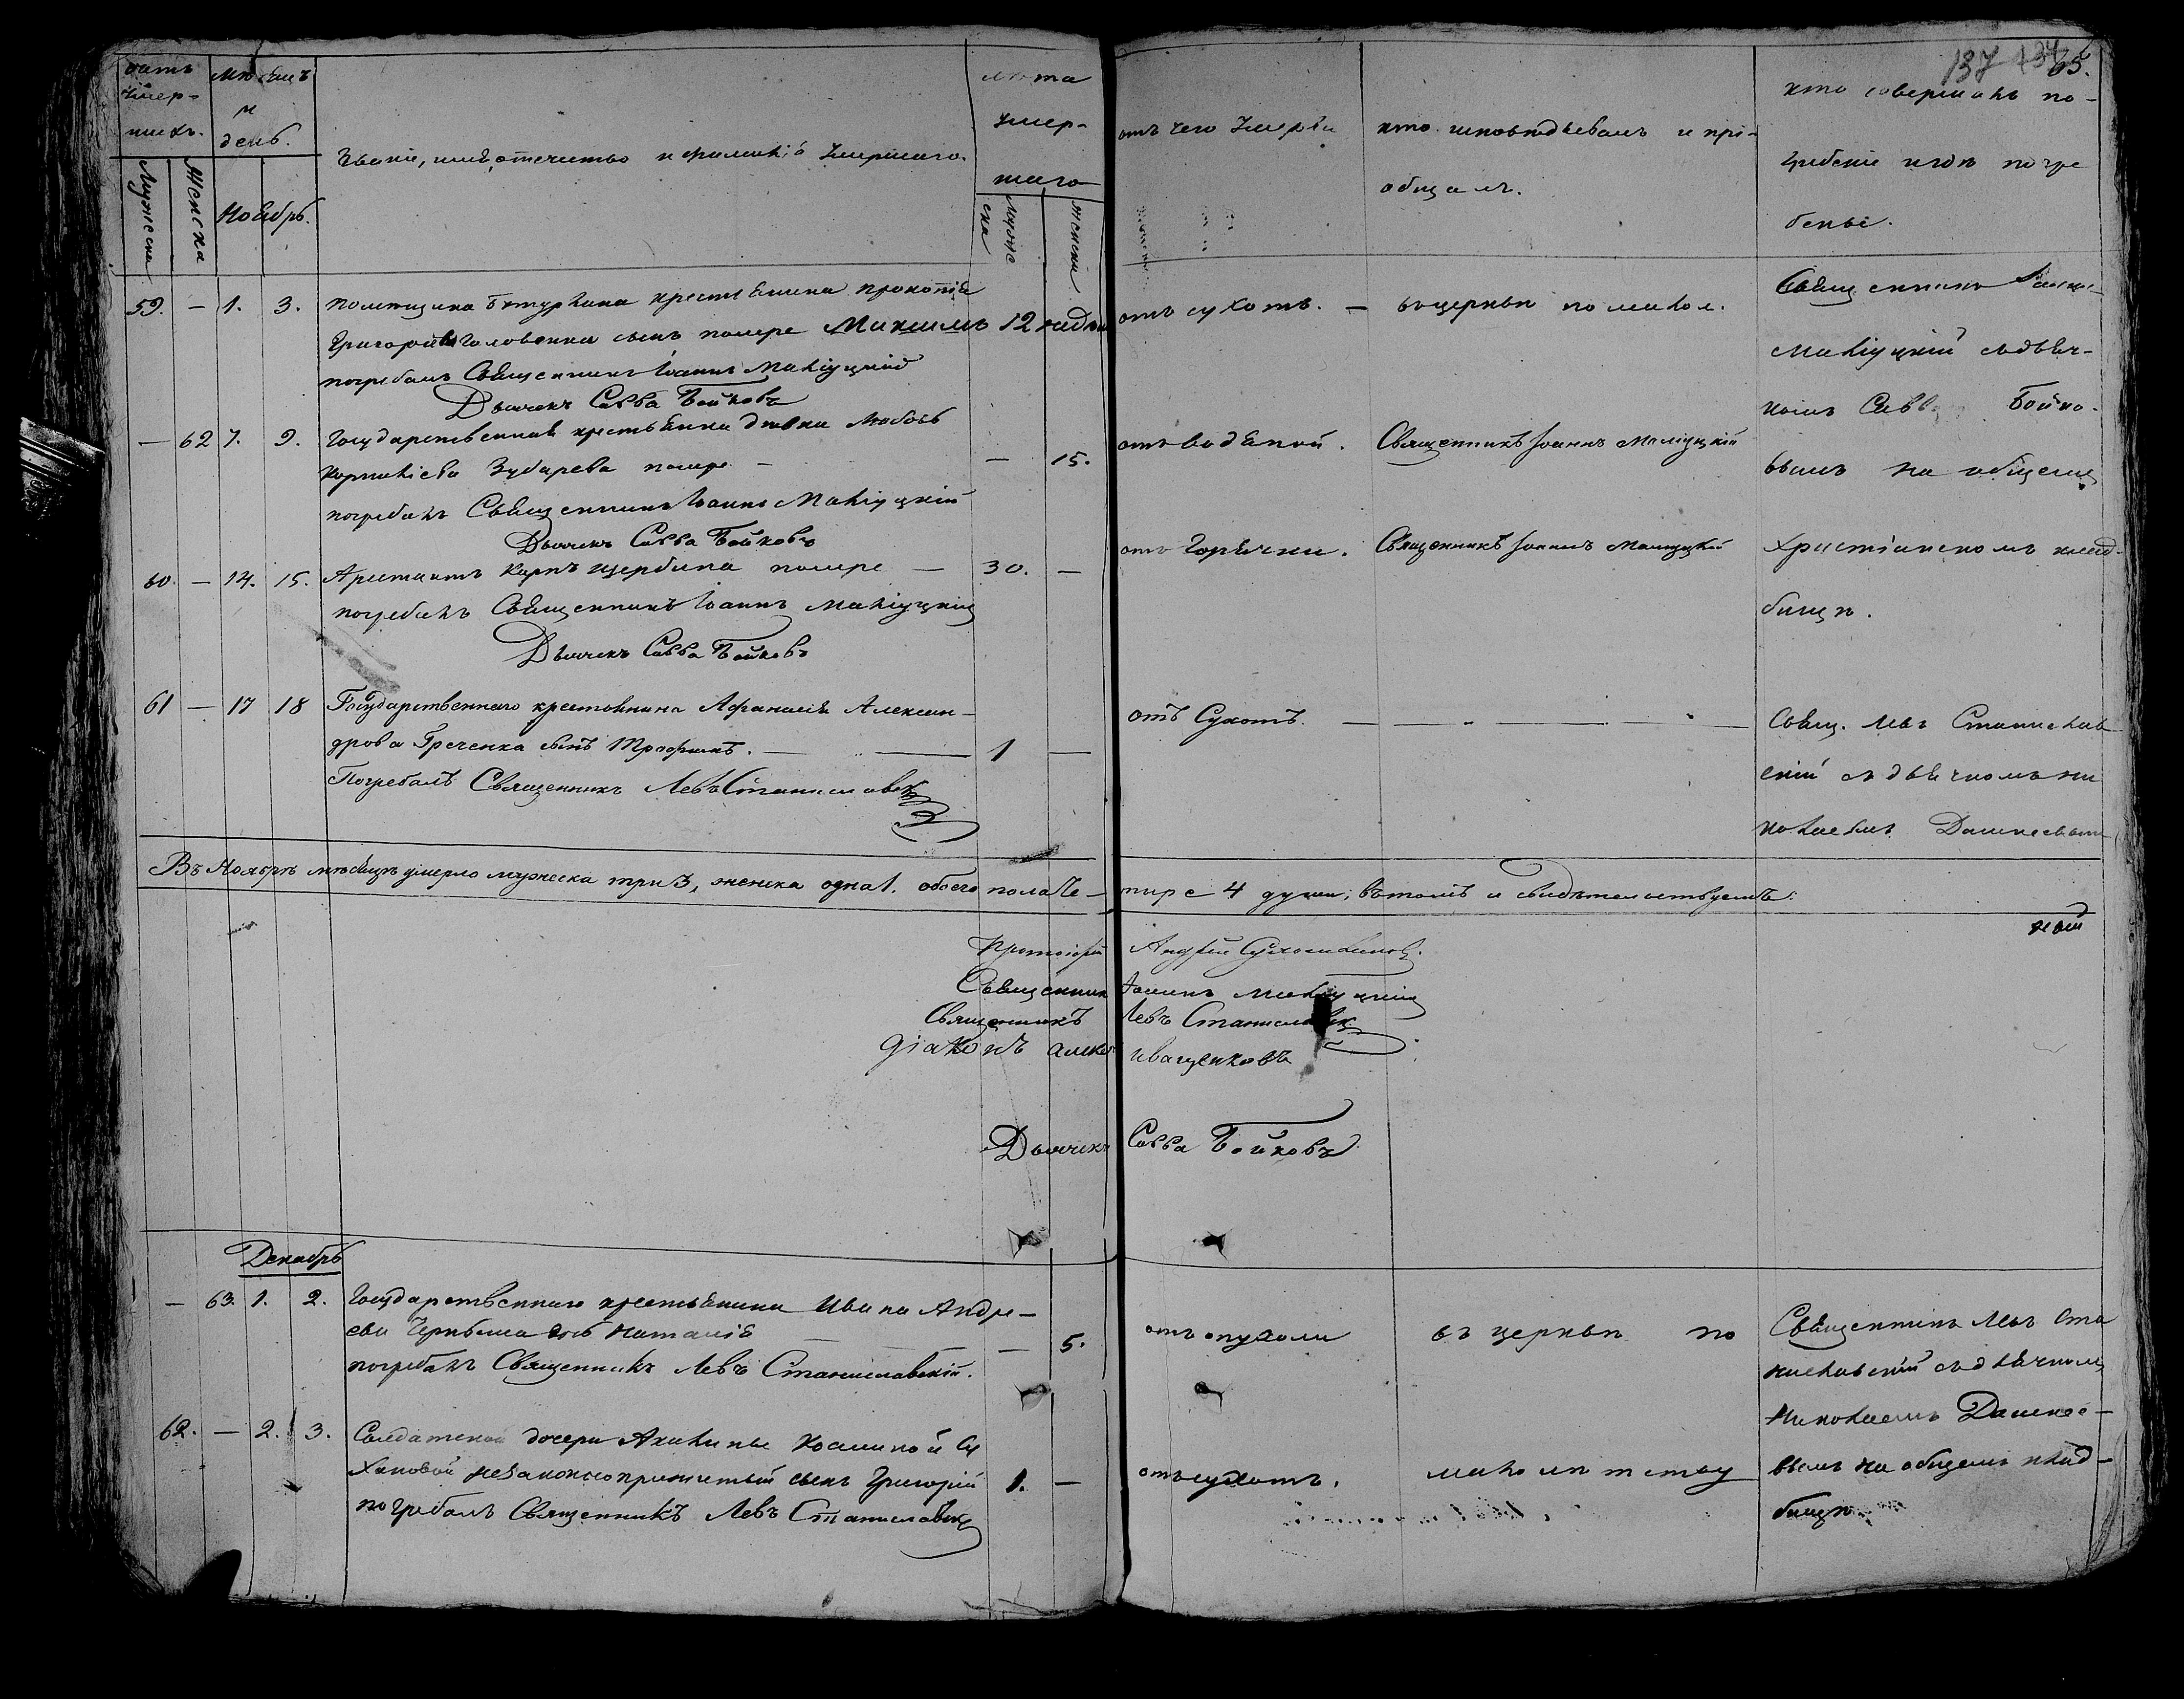 137 134 65.
счетъ умер-
шихъ.
Мужеска
Женска
мѣсяцъ
и
день.
Ноябрь.
Званіе, имя, отечество и фамилія умершаго.
лѣта
умер-
шаго
Мужеска
женска
отъ чего умерли
кто исповѣдывалъ и прі-
общалъ.
кто совершалъ по-
гребеніе и гдѣ погре
бены.
59. — 1. 3. помѣщика крестьянина Прокопія
Григорьева Головенка сынъ помере Максимъ 12 недѣль
погребалъ Священникъ Іоаннъ Малѣуцкій
Дьячекъ Савва Бойковъ
отъ сухотъ. — въ церкви по малол.
Священникъ
Малѣуцкій съ дьяч-
комъ Савв Бойко-
вымъ на общемъ
Христіанскомъ клад-
бищѣ.
— 62 7. 9. Государственная крестьянка дѣвка Любовь
Корниліева Зубарева помере — — 15.
погребалъ Священникъ Іоаннъ Малѣуцкій
Дьячекъ Савва Бойковъ
отъ водяной. Священникъ Іоаннъ Малѣуцкій
60. — 14. 15. Арестантъ Карпъ Щербина помере — 30. —
погребалъ Священникъ Іоаннъ Малѣуцкій
Дьячекъ Савва Бойковъ
отъ Горячки. Священникъ Іоаннъ Малѣуцкій
61 — 17 18 Государственнаго крестьянина Афанасія Алексан-
дрова Греченка сынъ Трофимъ. — 1 —
Погребалъ Священникъ Левъ Станиславскій
отъ Сухотъ. — — — —
Свящ. Левъ Станислав
скій съ дьячкомъ Ни
колаемъ
Въ Ноябрѣ мѣсяцѣ умерло мужеска три 3, женска одна 1. обоего пола че-
тыре 4 души; въ томъ и свидѣтельствуемъ:
Протоіерей Андрей
Священникъ Іоаннъ Малѣуцкій
Священникъ Левъ Станиславскій
Діаконъ Алекс Иващенковъ
Дьячекъ Савва Бойковъ
Декабрь
— 63. 1. 2. Государственнаго крестьянина Ивана Андре-
ева дочь Наталія — — 5.
погребалъ Священникъ Левъ Станиславскій.
отъ опухоли въ церкви по
Священникъ Левъ Ста
ниславскій съ дьячкомъ
Николаемъ
вымъ на общемъ клад-
бищѣ
62. — 2. 3. Солдатской дочери Акилины Косминой Су
хановой незаконноприжитый сынъ Григорій 1. —
погребалъ Священникъ Левъ Станиславскій
отъ сухотъ. малолѣтству